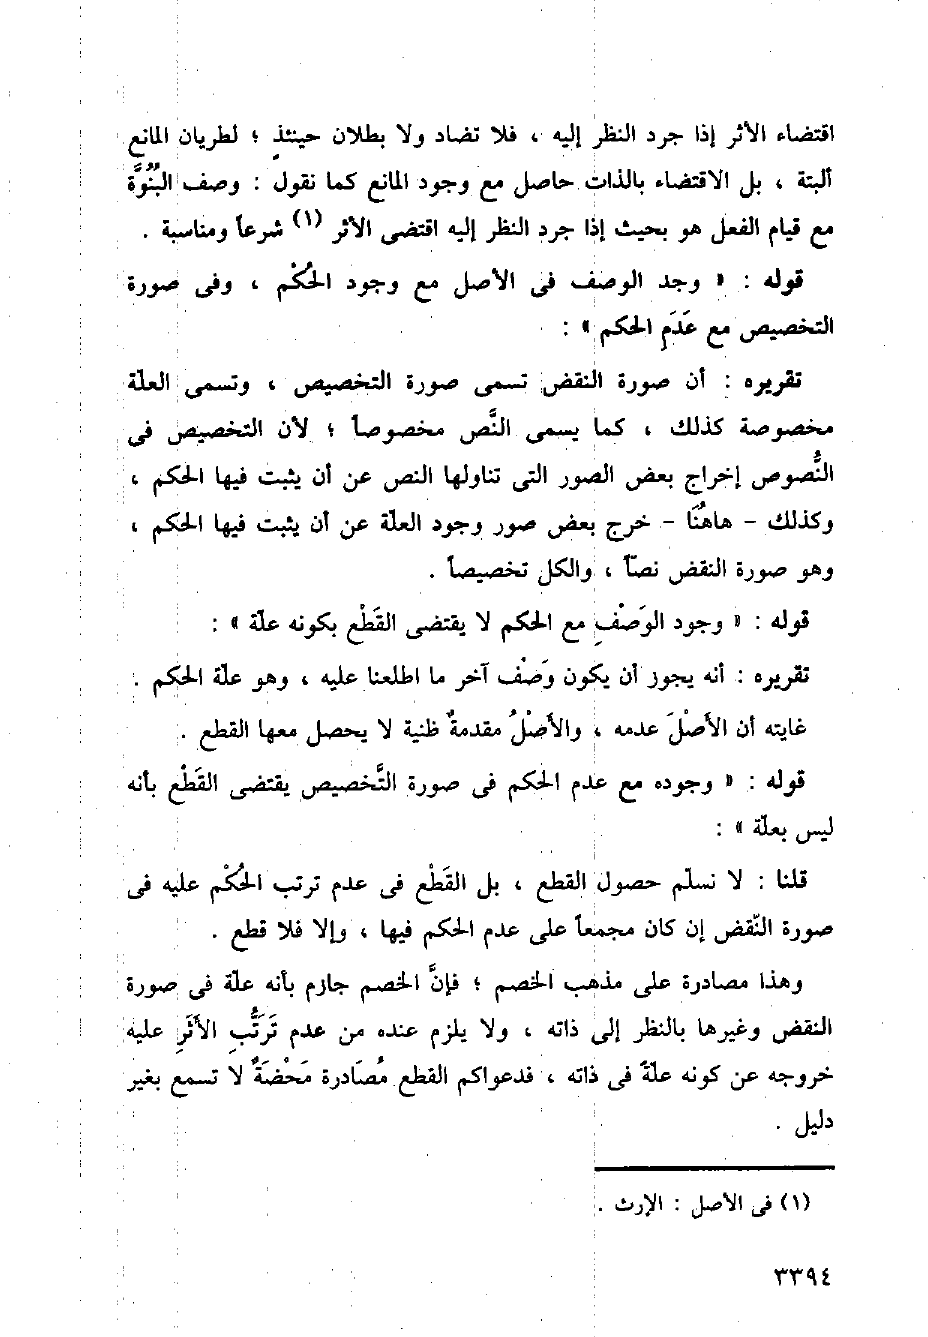 اقتضاء الأثر إذا جرد النظر إليه ، فلا تضاد ولا بطلان حينئذٍ ؛ لطريان المانع
ألبتة ، بل الاقتضاء بالذات حاصل مع وجود المانع كما نقول : وصف البُنُوَّة
مع قيام الفعل هو بحيث إذا جرد النظر إليه اقتضى الأثر (١) شرعاً ومناسبة .
قوله : « وجد الوصف فى الأصل مع وجود الحُكْم ، وفى صورة
التخصيص مع عَدَمِ الحكم » :
تقريره : أن صورة النقض تسمى صورة التخصيص ، وتسمى العلة
مخصوصة كذلك ، كما يسمى النَّص مخصوصاً ؛ لأن التخصيص فى
النُّصوص إخراج بعض الصور التى تناولها النص عن أن يثبت فيها الحكم ،
وكذلك - هاهُنَا - خرج بعض صور وجود العلّة عن أن يثبت فيها الحكم ،
وهو صورة النقض نصّاً ، والكل تخصيصاً .
قوله : « وجود الوَصْفِ مع الحكم لا يقتضى القَطْع بكونه علّة » :
تقريره : أنه يجوز أن يكون وَصْف آخر ما اطلعنا عليه ، وهو علّة الحكم .
غايته أن الأَصْلَ عدمه ، والأَصْلُ مقدمةٌ ظنية لا يحصل معها القطع .
قوله : « وجوده مع عدم الحكم فى صورة التَّخصيص يقتضى القَطْع بأنه
ليس بعلّة » :
قلنا : لا نسلّم حصول القطع ، بل القَطْع فى عدم ترتب الحُكْم عليه فى
صورة النّقض إن كان مجمعاً على عدم الحكم فيها ، وإلا فلا قطع .
وهذا مصادرة على مذهب الخصم ؛ فإنَّ الخصم جازم بأنه علّة فى صورة
النقض وغيرها بالنظر إلى ذاته ، ولا يلزم عنده من عدم تَرَتُّبِ الأَثَرِ عليه
خروجه عن كونه علّةً فى ذاته ، فدعواكم القطع مُصَادرة مَحْضَةٌ لا تسمع بغير
دليل .
(١) فى الأصل : الإرث .
٣٣٩٤